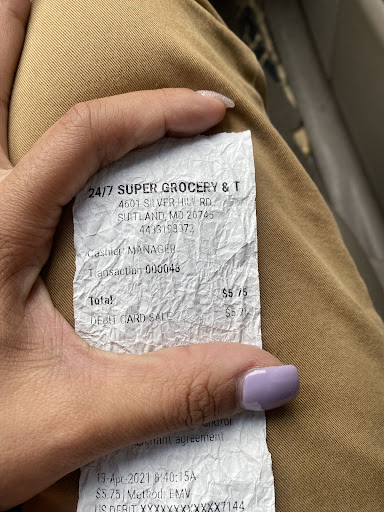 24/7 SUPER GROCERY & T
4601 SILVER HILL RD
SUITLAND, MD 20746
4433198373
Cashier: MANAGER
Transaction 000043
Total $5.75
DEBIT CARD SALE $5.75
and/or
agreement
13-Apr-2021 8:40:15A
$5.75 | Method: EMV
US DEBIT XXXXXXXXXXXX7144